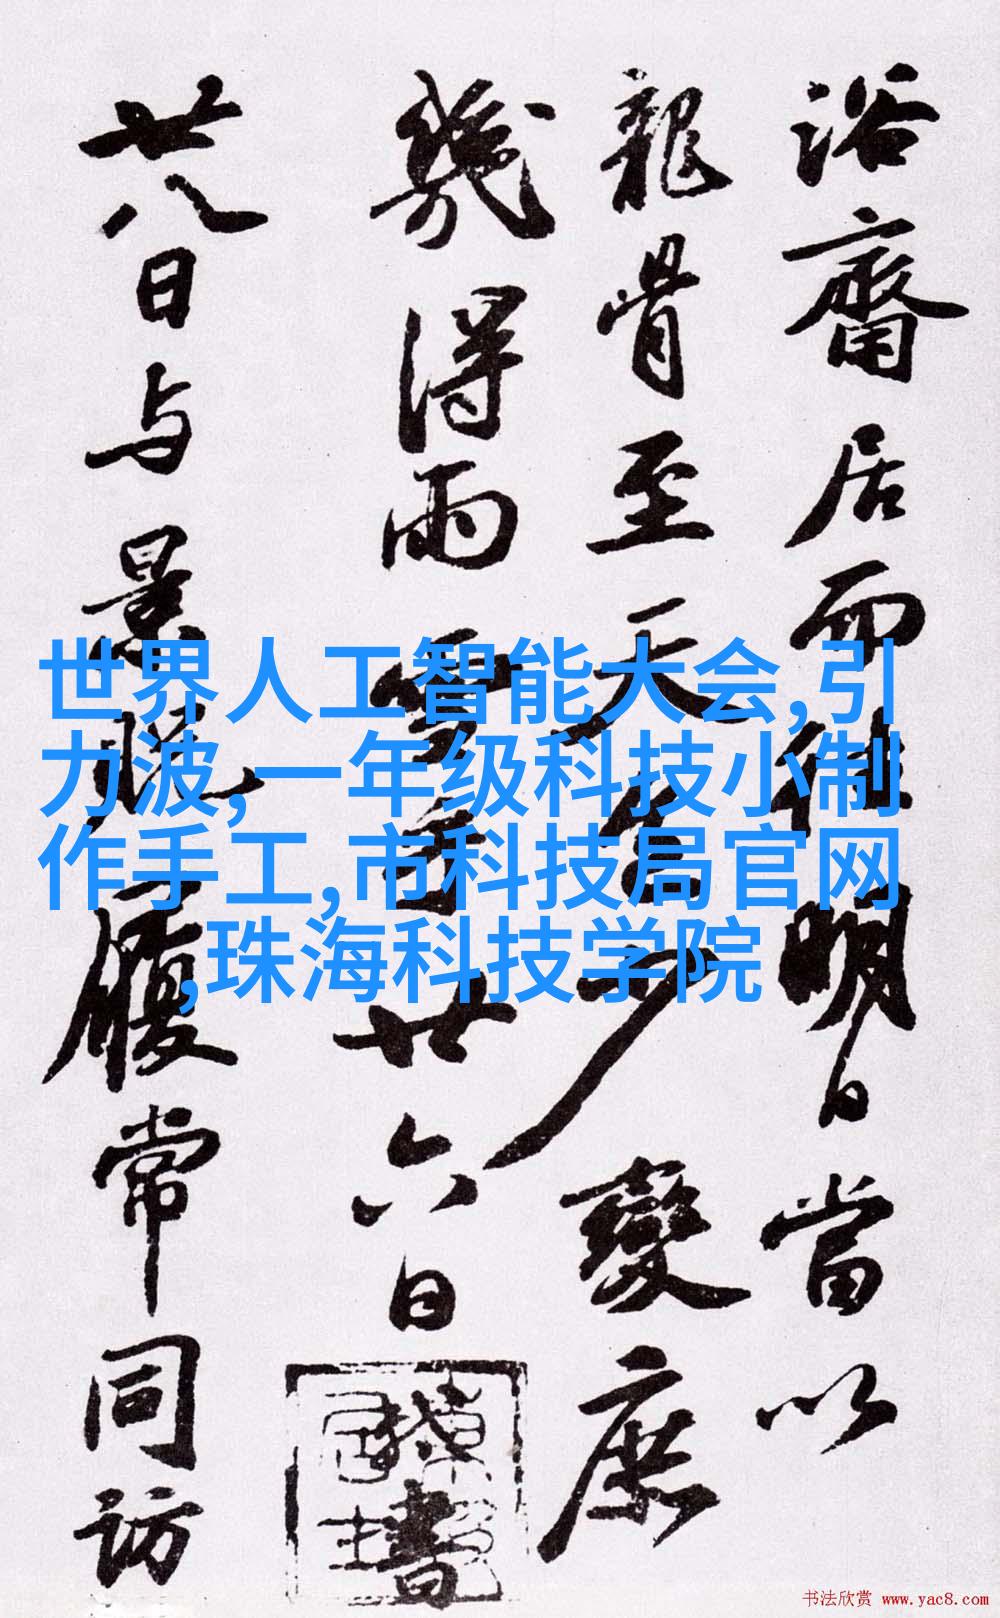 浴齋居而往明日當以
龍骨至天若少變庶
幾得雨雪等廿六日
書
廿八日与景貺履常同訪
世界人工智能大会,引
力波,一年级科技小制
作手工,市科技局官网
,珠海科技学院
书法欣赏 www.yac8.com